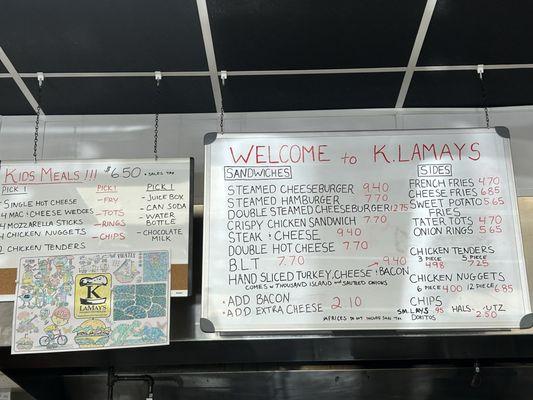 Kids Meals !!! $6.50 + SALES TAX
PICK 1
SINGLE HOT CHEESE
4 MAC & CHEESE WEDGES
4 MOZZARELLA STICKS
4 CHICKEN NUGGETS
2 CHICKEN TENDERS
PICK 1
-FRY
-TOTS
-RINGS
-CHIPS
PICK 1
- JUICE BOX
- CAN SODA
- WATER BOTTLE
- CHOCOLATE MILK
K
LAMAYS
WELCOME to K.LAMAYS
SANDWICHES
STEAMED CHEESEBURGER 9.40
STEAMED HAMBURGER 7.70
DOUBLE STEAMED CHEESEBURGER 12.75
CRISPY CHICKEN SANDWICH 7.70
STEAK & CHEESE 9.40
DOUBLE HOT CHEESE 7.70
B.L.T 7.70
HAND SLICED TURKEY, CHEESE & BACON 9.40
COMES W THOUSAND ISLAND AND SAUTÉED ONIONS
ADD BACON
ADD EXTRA CHEESE 2.10
*PRICES DO NOT INCLUDE SALES TAX
SIDES
FRENCH FRIES 4.70
CHEESE FRIES 6.85
SWEET POTATO FRIES 5.65
TATER TOTS 4.70
ONION RINGS 5.65
CHICKEN TENDERS
3 PIECE 4.98 5 PIECE 7.25
CHICKEN NUGGETS
6 PIECE 4.00 12 PIECE 6.85
CHIPS
SM. LAYS .95 HALS - UTZ 2.50
DORITOS